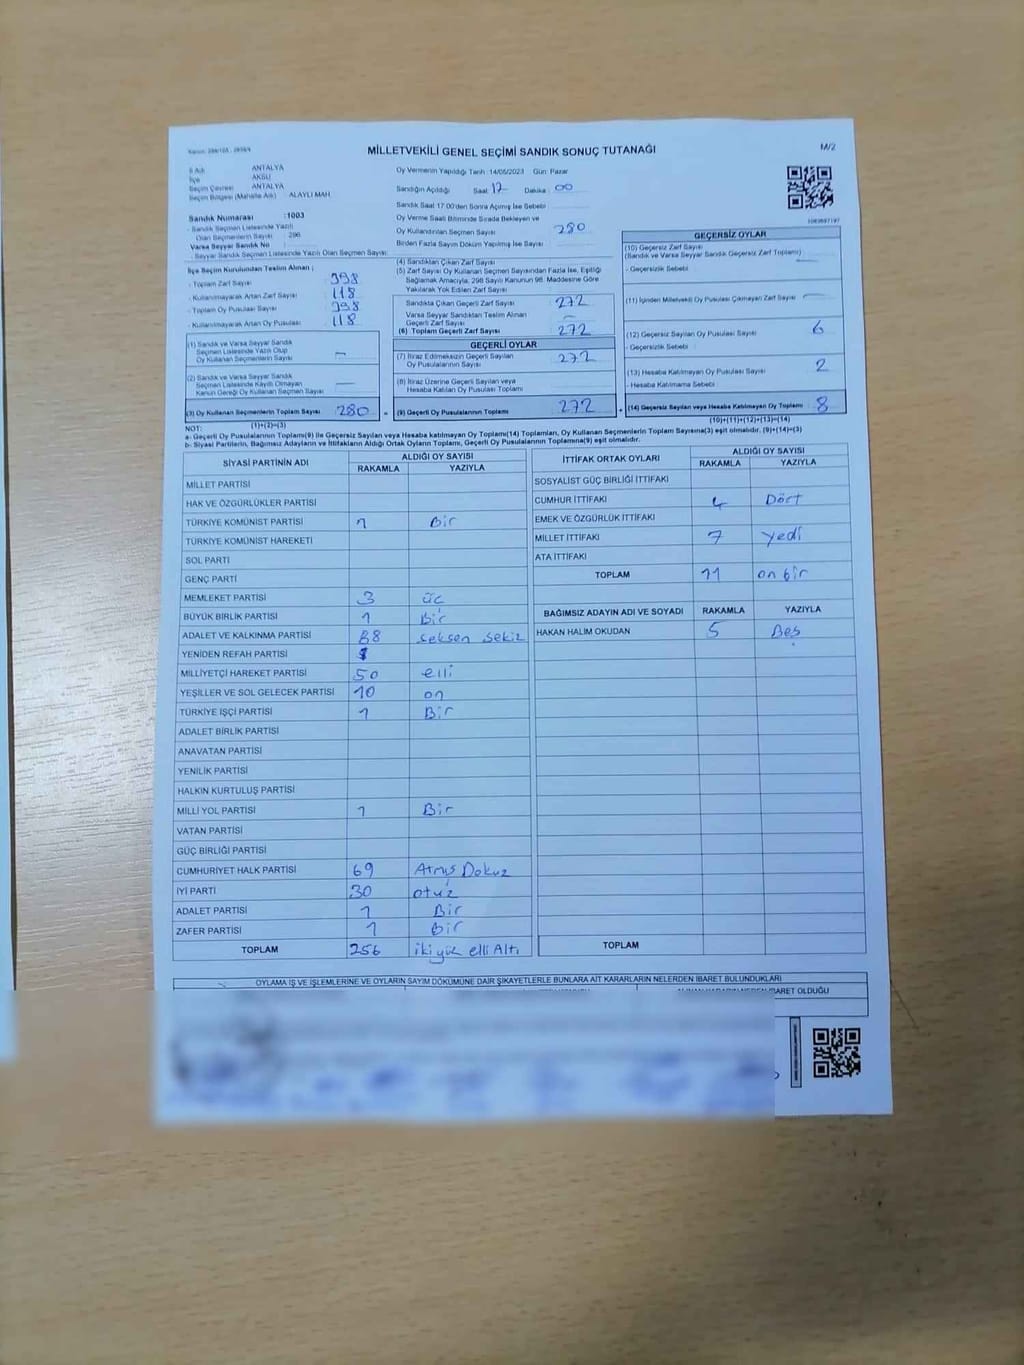 MİLLETVEKİLİ GENEL SEÇİMİ SANDIK SONUÇ TUTANAĞI
M/2
İl Adı ANTALYA
İlçe AKSU
Seçim Çevresi ANTALYA
Seçim Bölgesi (Mahalle Adı) ALAYLI MAH.
Sandık Numarası :1003
- Sandık Seçmen Listesinde Yazılı
Olan Seçmenlerin Sayısı 296
Varsa Seyyar Sandık No
- Seyyar Sandık Seçmen Listesinde Yazılı Olan Seçmen Sayısı:
İlçe Seçim Kurulundan Teslim Alınan ;
- Toplam Zarf Sayısı 398
- Kullanılmayarak Artan Zarf Sayısı 118
- Toplam Oy Pusulası Sayısı 398
- Kullanılmayarak Artan Oy Pusulası 118
(1) Sandık ve Varsa Seyyar Sandık
Seçmen Listesinde Yazılı Olup
Oy Kullanan Seçmenlerin Sayısı —
(2) Sandık ve Varsa Seyyar Sandık
Seçmen Listesinde Kayıtlı Olmayan
Kanun Gereği Oy Kullanan Seçmen Sayısı —
(3) Oy Kullanan Seçmenlerin Toplam Sayısı 280
(1)+(2)=(3)
Oy Vermenin Yapıldığı Tarih :14/05/2023 Gün: Pazar
Sandığın Açıldığı Saat: 17 Dakika : 00
Sandık Saat 17:00'den Sonra Açılmış İse Sebebi :
Oy Verme Saati Bitiminde Sırada Bekleyen ve
Oy Kullandırılan Seçmen Sayısı 280
Birden Fazla Sayım Döküm Yapılmış İse Sayısı
(4) Sandıktan Çıkan Zarf Sayısı
(5) Zarf Sayısı Oy Kullanan Seçmen Sayısından Fazla İse, Eşitliği
Sağlamak Amacıyla, 298 Sayılı Kanunun 98. Maddesine Göre
Yakılarak Yok Edilen Zarf Sayısı
Sandıkta Çıkan Geçerli Zarf Sayısı 272
Varsa Seyyar Sandıktan Teslim Alınan
Geçerli Zarf Sayısı —
(6) Toplam Geçerli Zarf Sayısı 272
GEÇERLİ OYLAR
(7) İtiraz Edilmeksizin Geçerli Sayılan
Oy Pusulalarının Sayısı 272
(8) İtiraz Üzerine Geçerli Sayılan veya
Hesaba Katılan Oy Pusulası Toplamı
= (9) Geçerli Oy Pusulalarının Toplamı 272
GEÇERSİZ OYLAR
(10) Geçersiz Zarf Sayısı
(Sandık ve Varsa Seyyar Sandık Geçersiz Zarf Toplamı) —
- Geçersizlik Sebebi
(11) İçinden Milletvekili Oy Pusulası Çıkmayan Zarf Sayısı —
(12) Geçersiz Sayılan Oy Pusulası Sayısı 6
- Geçersizlik Sebebi
(13) Hesaba Katılmayan Oy Pusulası Sayısı 2
- Hesaba Katılmama Sebebi
+ (14) Geçersiz Sayılan veya Hesaba Katılmayan Oy Toplamı 8
(10)+(11)+(12)+(13)=(14)
NOT:
a- Geçerli Oy Pusulalarının Toplamı(9) ile Geçersiz Sayılan veya Hesaba katılmayan Oy Toplamı(14) Toplamları, Oy Kullanan Seçmenlerin Toplam Sayısına(3) eşit olmalıdır. (9)+(14)=(3)
b- Siyasi Partilerin, Bağımsız Adayların ve İttifakların Aldığı Ortak Oyların Toplamı, Geçerli Oy Pusulalarının Toplamına(9) eşit olmalıdır.
SİYASİ PARTİNİN ADI ALDIĞI OY SAYISI
RAKAMLA YAZIYLA
MİLLET PARTİSİ
HAK VE ÖZGÜRLÜKLER PARTİSİ
TÜRKİYE KOMÜNİST PARTİSİ 1 Bir
TÜRKİYE KOMÜNİST HAREKETİ
SOL PARTİ
GENÇ PARTİ
MEMLEKET PARTİSİ 3 üç
BÜYÜK BİRLİK PARTİSİ 1 Bir
ADALET VE KALKINMA PARTİSİ 88 seksen sekiz
YENİDEN REFAH PARTİSİ
MİLLİYETÇİ HAREKET PARTİSİ 50 elli
YEŞİLLER VE SOL GELECEK PARTİSİ 10 on
TÜRKİYE İŞÇİ PARTİSİ 1 Bir
ADALET BİRLİK PARTİSİ
ANAVATAN PARTİSİ
YENİLİK PARTİSİ
HALKIN KURTULUŞ PARTİSİ
MİLLİ YOL PARTİSİ 1 Bir
VATAN PARTİSİ
GÜÇ BİRLİĞİ PARTİSİ
CUMHURİYET HALK PARTİSİ 69 Atmış Dokuz
İYİ PARTİ 30 otuz
ADALET PARTİSİ 1 Bir
ZAFER PARTİSİ 1 Bir
TOPLAM 256 iki yüz elli Altı
İTTİFAK ORTAK OYLARI ALDIĞI OY SAYISI
RAKAMLA YAZIYLA
SOSYALİST GÜÇ BİRLİĞİ İTTİFAKI
CUMHUR İTTİFAKI 4 Dört
EMEK VE ÖZGÜRLÜK İTTİFAKI
MİLLET İTTİFAKI 7 yedi
ATA İTTİFAKI
TOPLAM 11 on bir
BAĞIMSIZ ADAYIN ADI VE SOYADI RAKAMLA YAZIYLA
HAKAN HALİM OKUDAN 5 Beş
TOPLAM
OYLAMA İŞ VE İŞLEMLERİNE VE OYLARIN SAYIM DÖKÜMÜNE DAİR ŞİKAYETLERLE BUNLARA AİT KARARLARIN NELERDEN İBARET BULUNDUKLARI
İBARET OLDUĞU